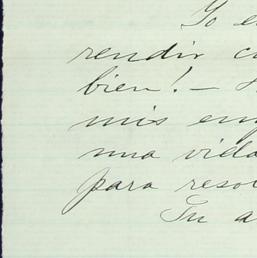 Yo e
rendir c
bien! –
mis em
una vida
para reso
Tu a